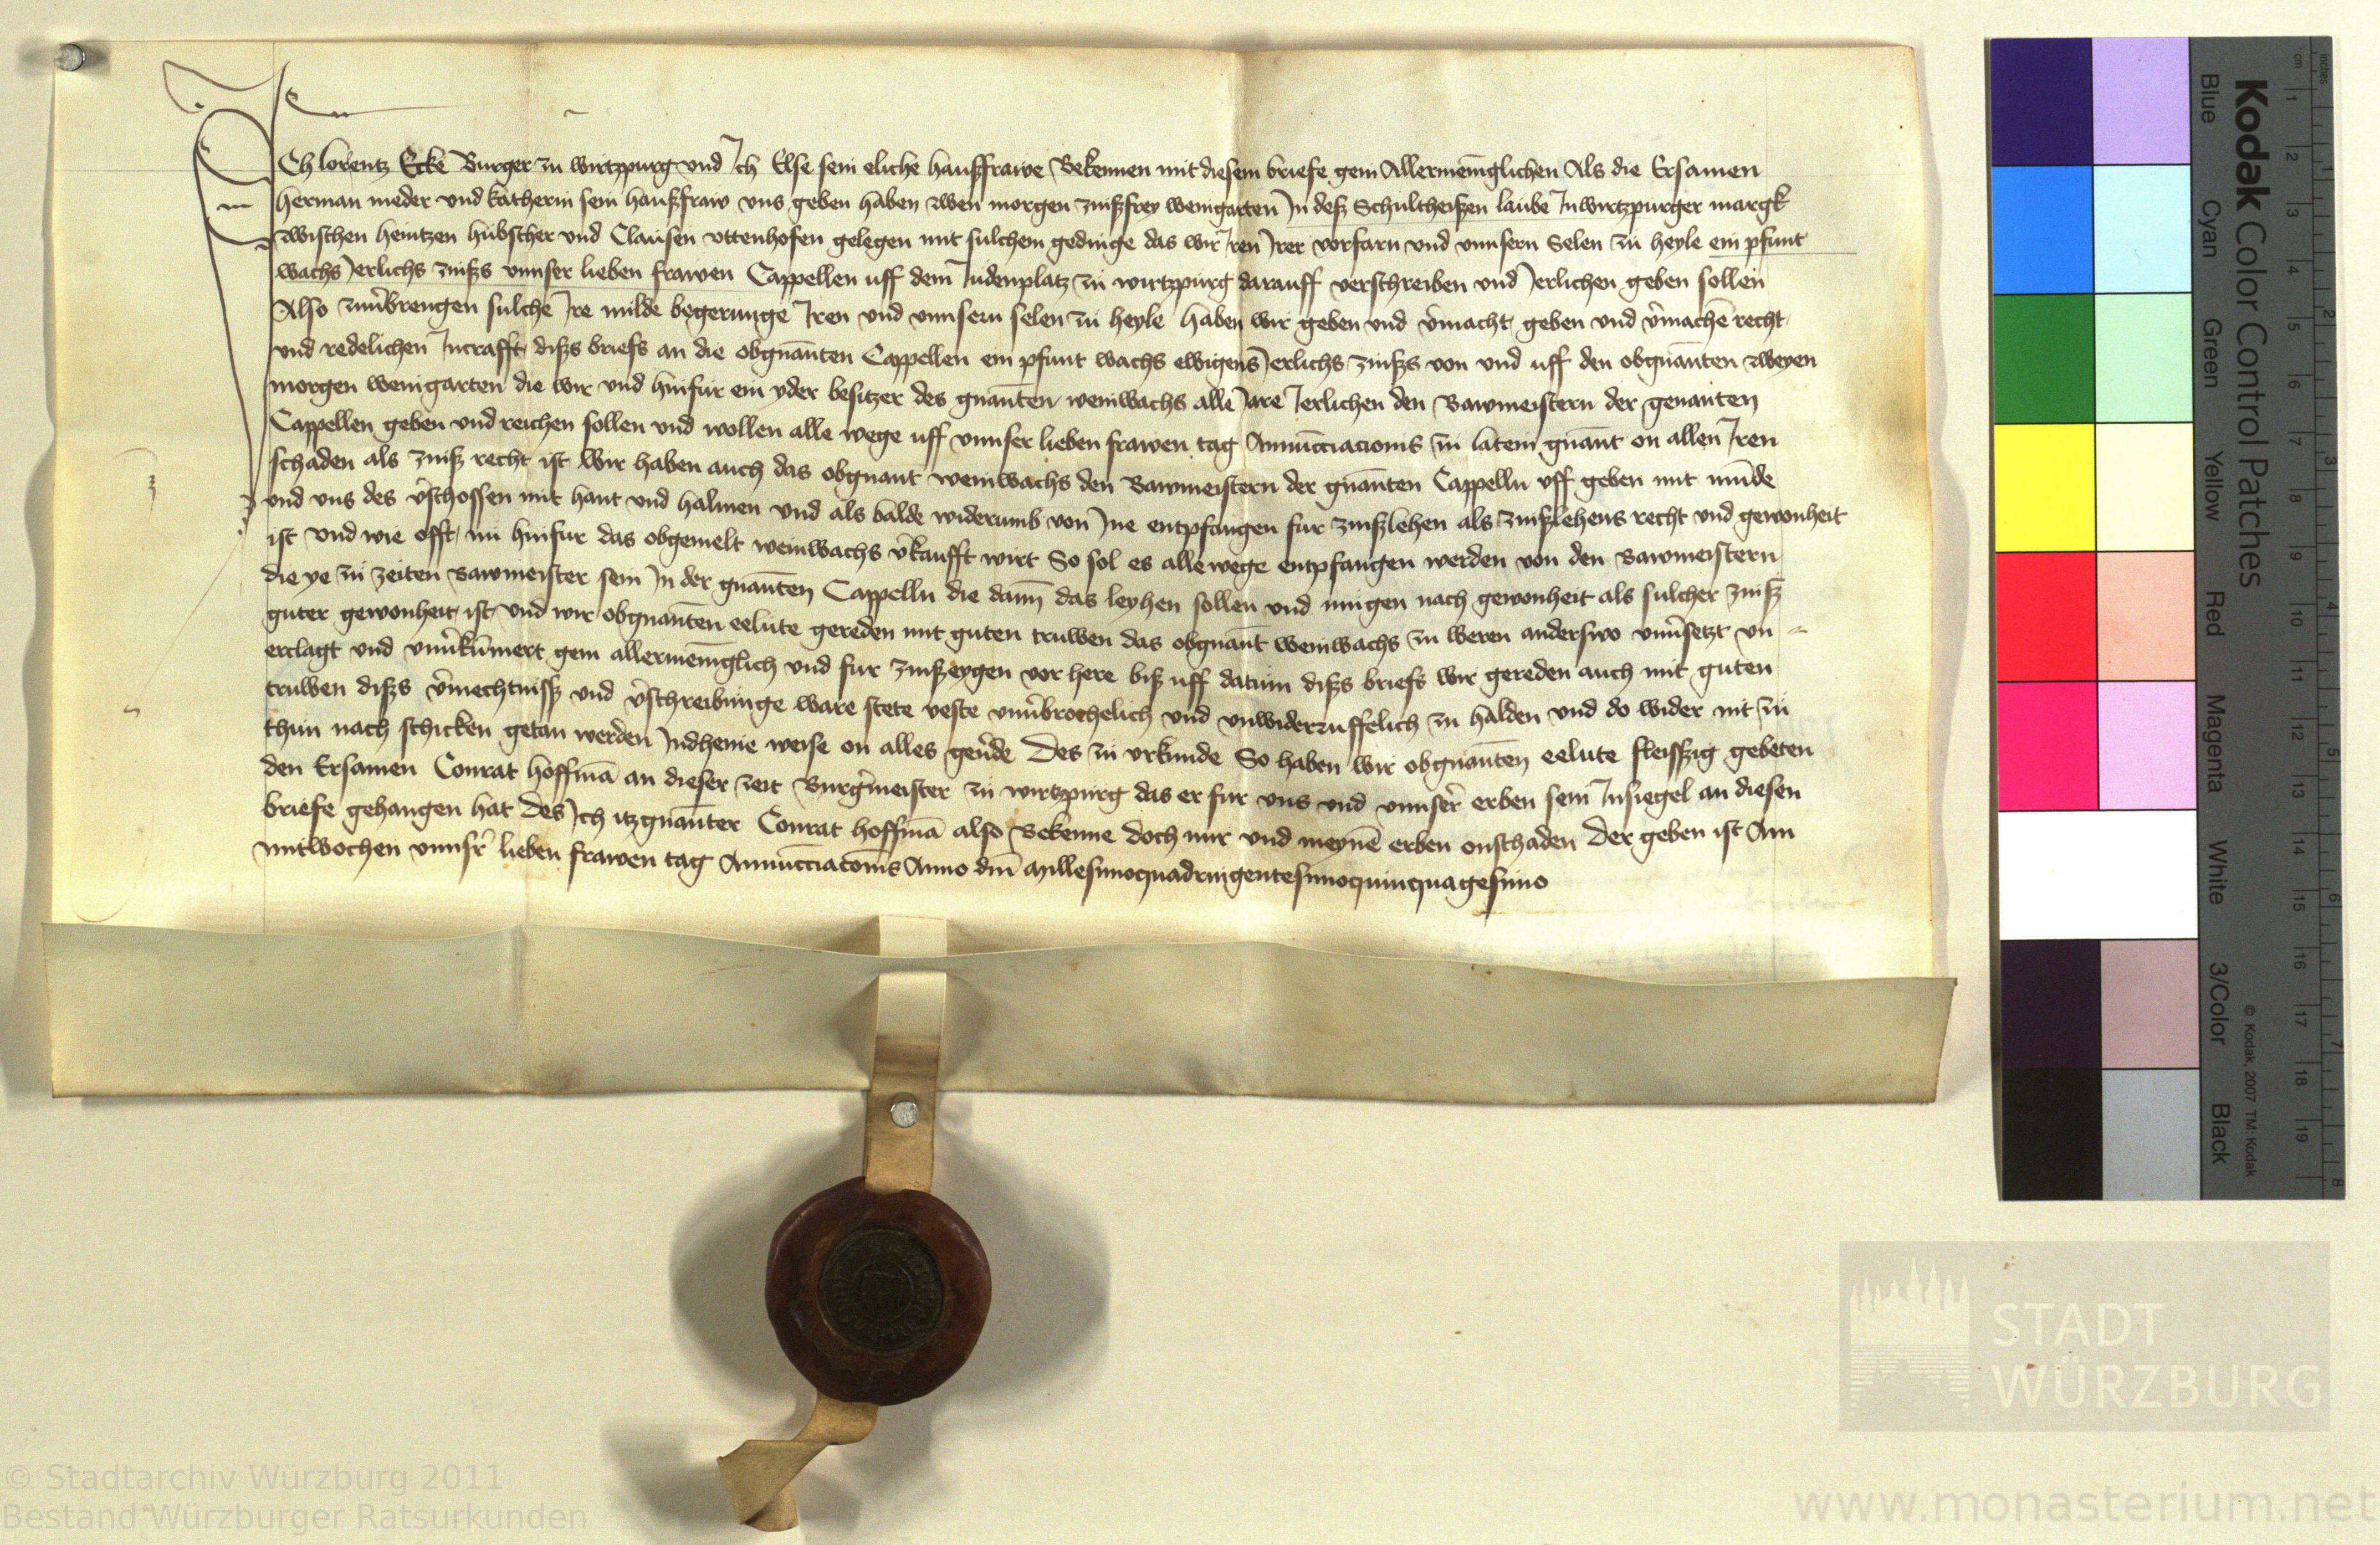 ICh lorentz Ecke Burger zu wirtzpurg und Ich Else sein eliche haußfrawe Bekennen mit diesem briefe gein Allermeniglichen Als die Ersamen
herman meder vnd katherin sein haußfraw vns geben haben zwen morgen zinßfrey weingarten In deß Schultheißen laube Inwirtzpurger margk
zwischen heintzen hubscher vnd Clausen vttenhofen gelegen mit sulchem gedinge das wir Iren Irer vorfarn vnd vnnsern Selen zu heyle ein pfunt
wachs Ierlichs zinßs vnnser lieben frawen Cappellen uff dem Iudenplatz zu wirtzpurg darauff verschreiben vnd Ierlichen geben sollen
Also zuuerbrengen sulche Ire milde begerunge Iren vnd vnnsern selen zu heyle haben wir geben vnd v̉macht geben vnd v̉machē recht
vnd redelichen Incrafft dißs briefs an die obgnanten Cappellen ein pfunt wachs ewigens Ierlichs zinßs von vnd uff den obgnanten zweyen
morgen weingarten die wir vnd hinfur ein yder besitzer des gnanten weinwachs alle Iare Ierlichen den Bawmeistern der genanten
Cappellen geben vnd reichen sollen vnd wollen alle wege uff vnnser lieben frawen tag Annucciacionis zu latein gnant on allen Iren
schaden als zinß recht ist Wir haben auch das obgnant weinwachs den Bawmeistern der gnanten Cappelln vff geben mit mūde
vnd vns des v̉schossen mit hant vnd halmen vnd als balde widerumb von Ine entpfangen fur zinßlehen als zinßlehens recht vnd gewonheit
ist vnd wie offt nu hinfur das obgemelt weinwachs v̉kaufft wirt So sol es allewege entpfangen werden von den Bawmeistern
die ye zu zeiten Bawmeister sein In der gnanten Cappelln die dann das leyhen sollen vnd mugen nach gewonheit als sulcher zinß
guter gewonheit ist vnd wir obgnanten eelute gereden mit guten truwen das obgnant weinwachs zu weren anderswo vnủsetzt vn
erclagt vnd vnủkūmert gein allermeniglich vnd fur zinßeygen vor here biß uff datum dißs briefs wir gereden auch mit guten
truwen dißs v̉mechtnisß vnd v̉schreibunge ware stete veste vnủbrochelich vnd vnwiderruffelich zu halden vnd do wider nit zu
thun nach schicken getan werden Indheine weise on alles geủde Des zu vrkunde So haben wir obgnanten eelute fleisßig gebeten
den Ersamen Conrat hoffmā an dieser zeit Burgm̉eister zu wirtzpurg das er fur vns vnd vnnser̉ erben sein Insiegel an diesen
briefe gehangen hat Des Ich itzgnanter Conrat hoffmā also Bekenne doch mir vnd meynē erben onschaden Der geben ist Am
mitwochen vnnsr̉ lieben frawen tag Annucciacōnis Anno dm̄ millesimoquadringentesimoquinquagesimo
Kodak Color Control Patches
Blue Cyan Green Yellow Red Magenta White 3/Color Black
© Kodak, 2007 TM: Kodak
cm 1 2 3 4 5 6 7 8 9 10 11 12 13 14 15 16 17 18 19
inches 1 2 3 4 5 6 7 8
STADT
WÜRZBURG
© Stadtarchiv Würzburg 2011
Bestand Würzburger Ratsurkunden
www.monasterium.net